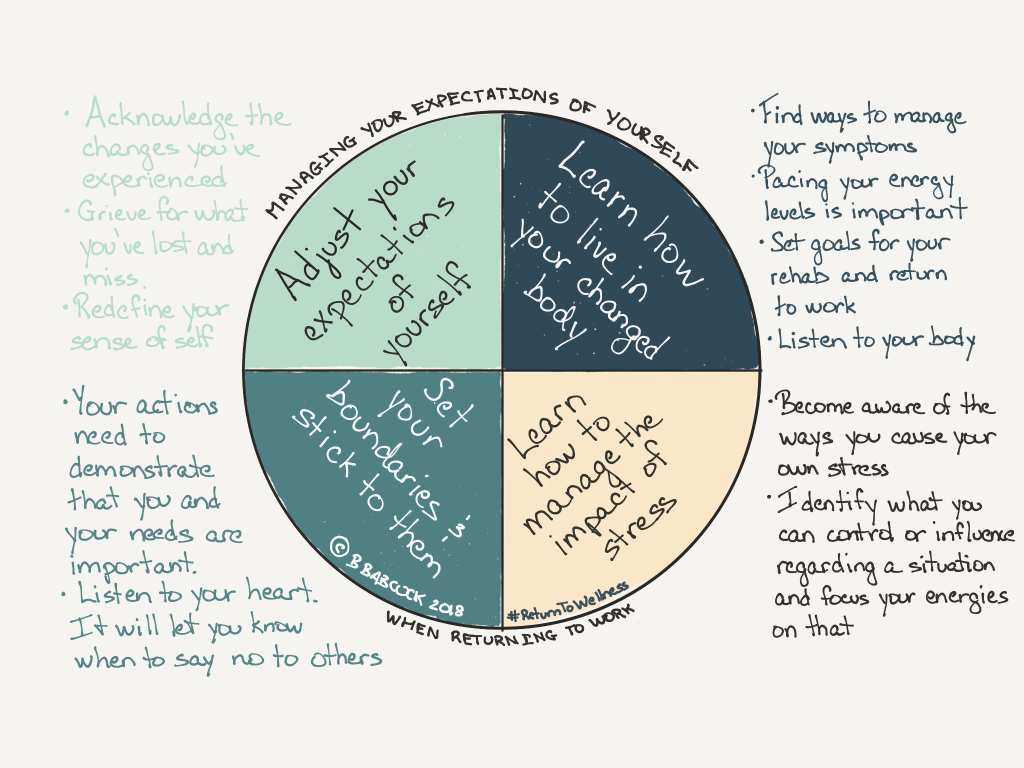 MANAGING YOUR EXPECTATIONS OF YOURSELF
• Acknowledge the
changes you've
experienced
• Grieve for what
you've lost and
miss.
• Redefine your
sense of self
Adjust your
expectations
of
yourself
Learn how
to live in
your changed
body
• Find ways to manage
your symptoms
• Pacing your energy
levels is important
• Set goals for your
rehab and return
to work
• Listen to your body
• Your actions
need to
demonstrate
that you and
your needs are
important.
• Listen to your heart.
It will let you know
when to say no to others
Set
your
boundaries &
stick to them
© B BABCOCK 2018
Learn
how to
manage the
impact of
stress
#ReturnToWellness
• Become aware of the
ways you cause your
own stress
• Identify what you
can control or influence
regarding a situation
and focus your energies
on that
WHEN RETURNING TO WORK